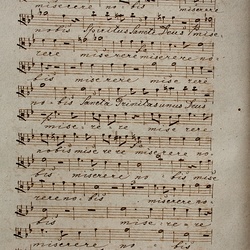 miserere nobis miserere
nobis Spiritus Sancte Deus mise
rere miserere miserere no
bis miserere mise re
nobis Sancta Trinitas unus Deus
mise re re mise re re
nobis miserere miserere no
bis miserere nobis miserere
rere nobis miserere no
bis mise re re
miserere nobis